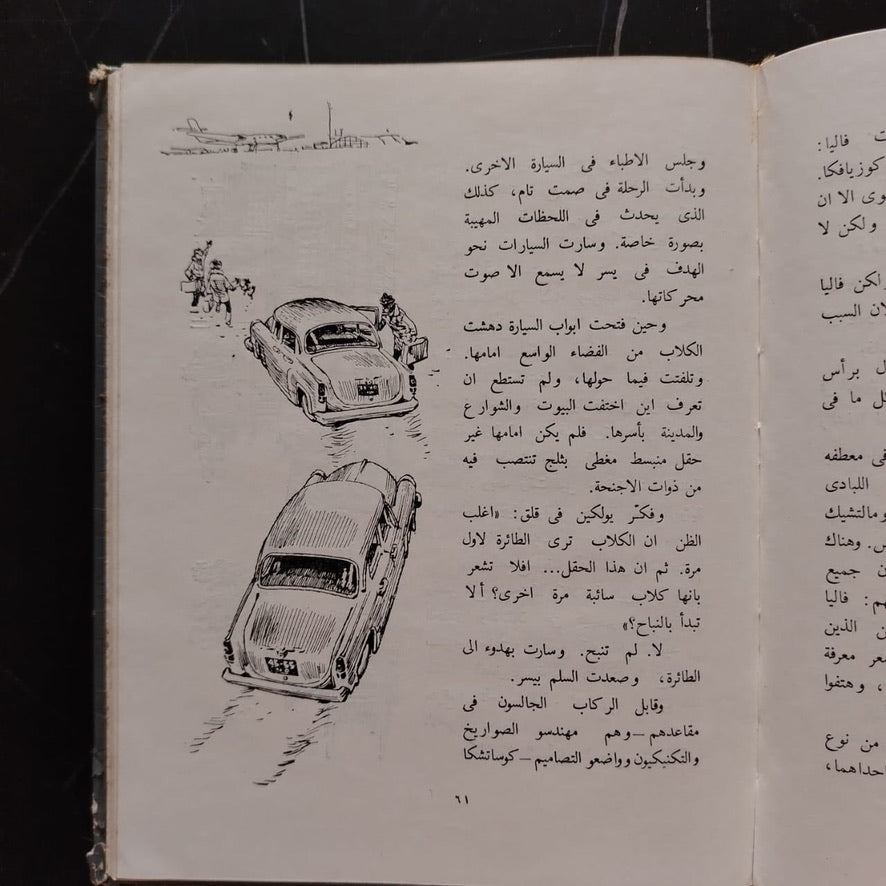 وجلس الاطباء فى السيارة الاخرى.
وبدأت الرحلة فى صمت تام، كذلك
الذى يحدث فى اللحظات المهيبة
بصورة خاصة. وسارت السيارات نحو
الهدف فى يسر لا يسمع الا صوت
محركاتها.
وحين فتحت ابواب السيارة دهشت
الكلاب من الفضاء الواسع امامها.
وتلفتت فيما حولها، ولم تستطع ان
تعرف اين اختفت البيوت والشوارع
والمدينة بأسرها. فلم يكن امامها غير
حقل منبسط مغطى بثلج تنتصب فيه
من ذوات الاجنحة.
وفكّر يولكين فى قلق: «اغلب
الظن ان الكلاب ترى الطائرة لاول
مرة. ثم ان هذا الحقل... افلا تشعر
بانها كلاب سائبة مرة اخرى؟ ألا
تبدأ بالنباح؟»
لا. لم تنبح. وسارت بهدوء الى
الطائرة، وصعدت السلم بيسر.
وقابل الركاب الجالسون فى
مقاعدهم — وهم مهندسو الصواريخ
والتكنيكيون وواضعو التصاميم — كوساتشكا
٦١
فاليا:
كوزيافكا.
الا ان
ولكن لا
لكن فاليا
السبب
برأس
ما فى
فى معطفه
اللبادى
ومالتشيك
وهناك
جميع
فاليا
الذين
معرفة
وهتفوا
من نوع
احداهما،